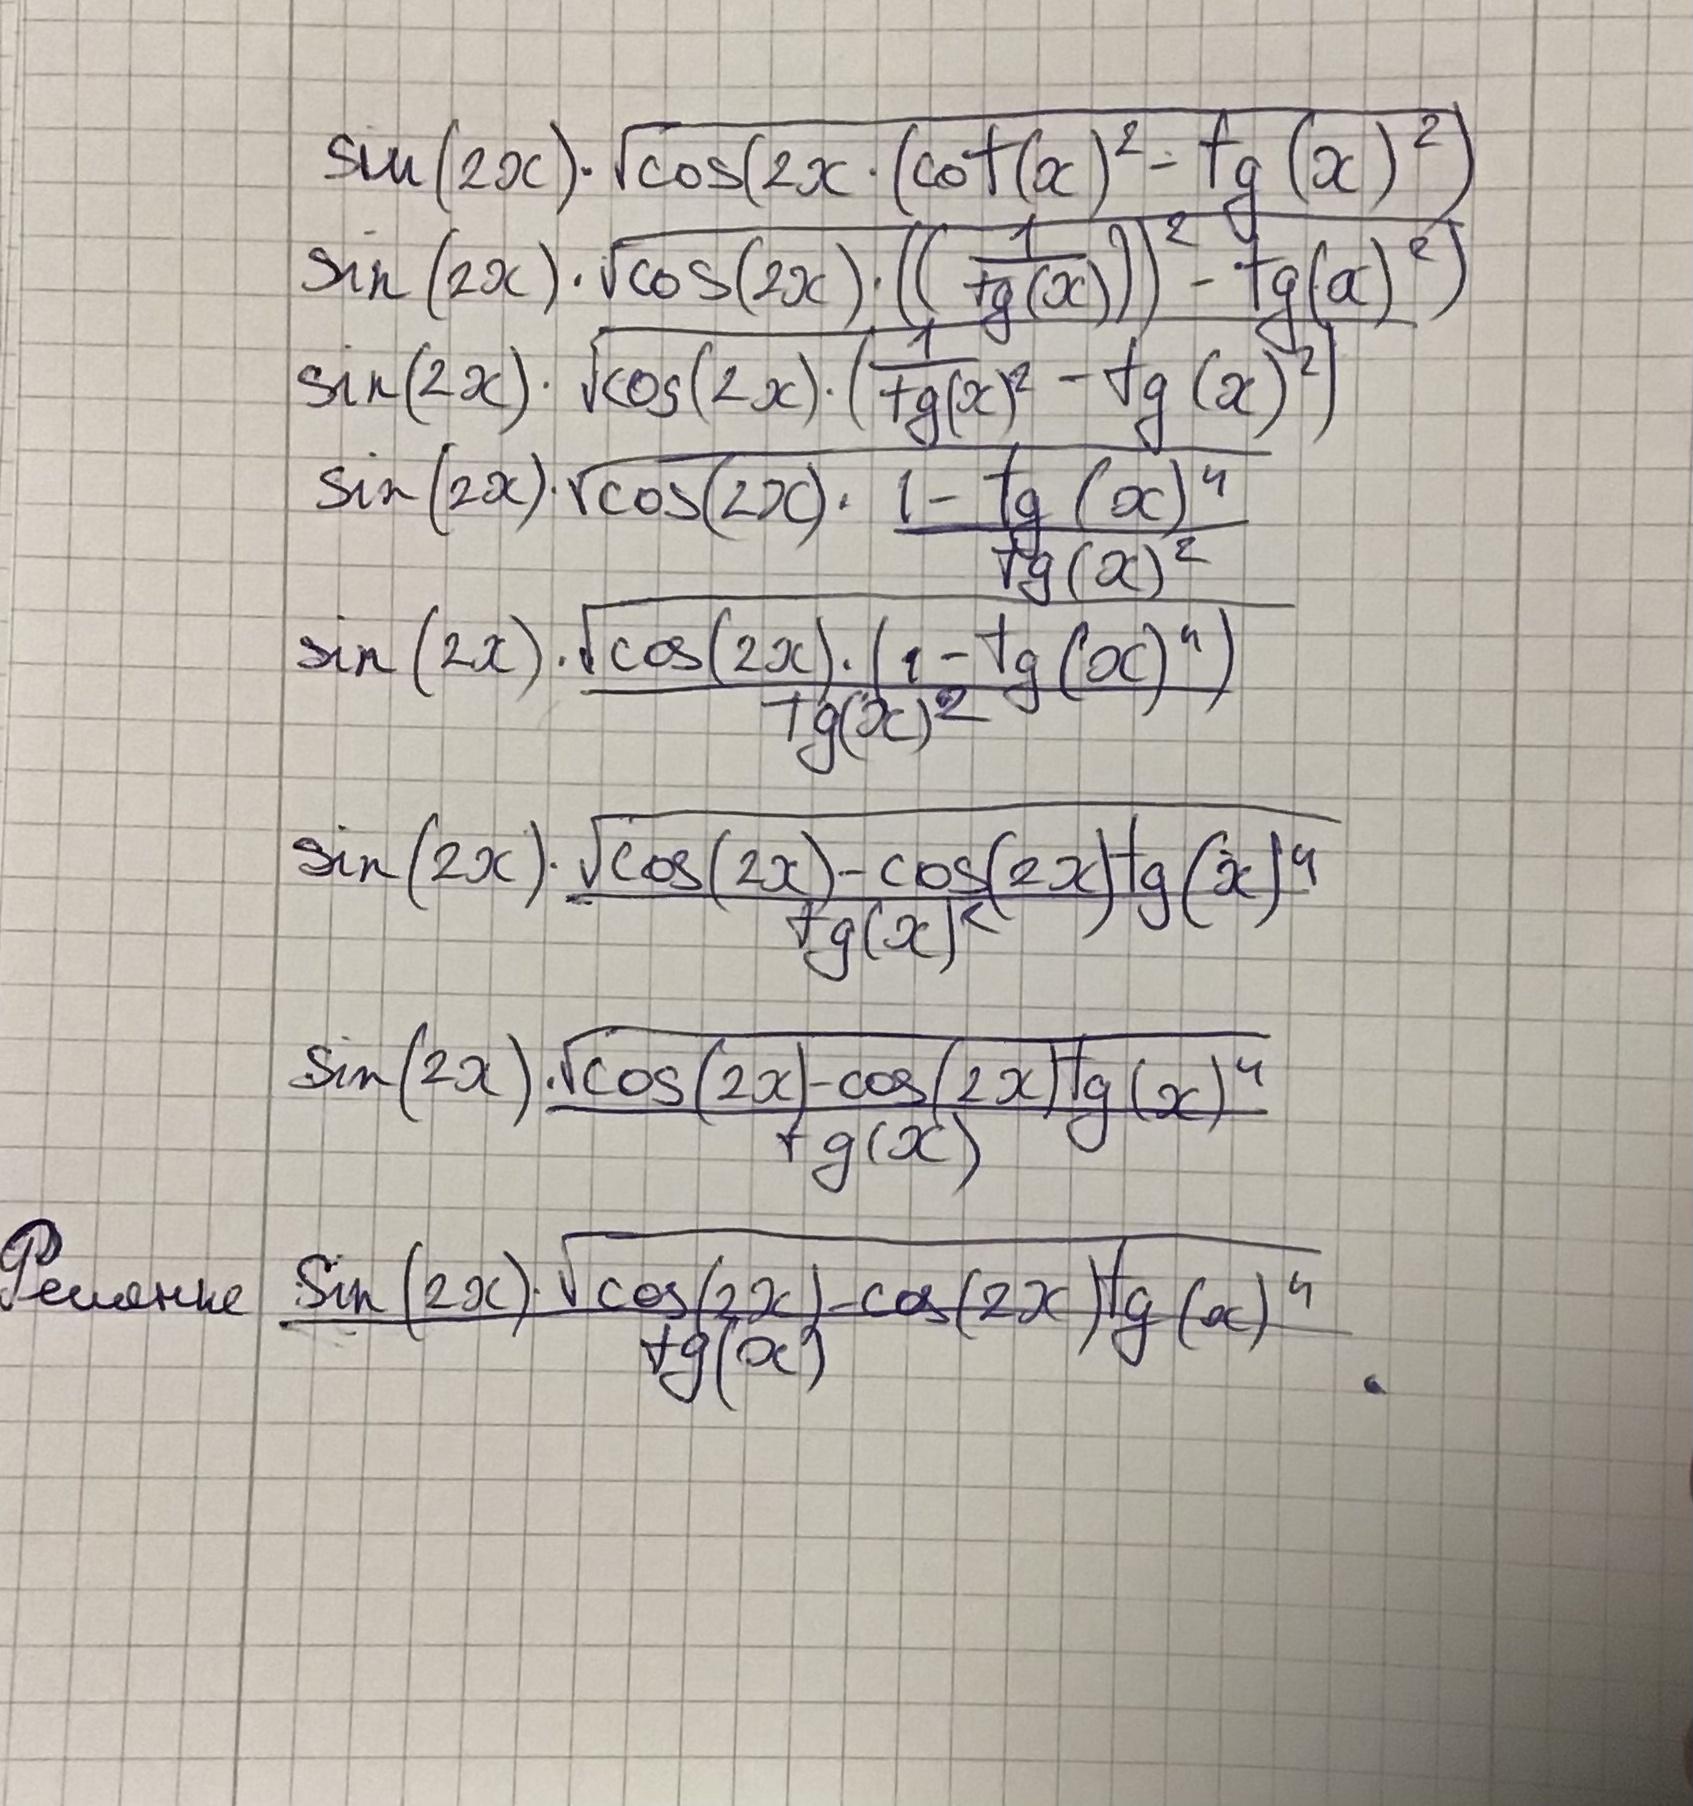 sin(2x)·√cos(2x·(cot(x)²-tg(x)²)
sin(2x)·√cos(2x)·((1/tg(x)))²-tg(x)²)
sin(2x)·√cos(2x)·(1/tg(x)²-tg(x)²)
sin(2x)·√cos(2x)·1-tg(x)⁴/tg(x)²
sin(2x)·√cos(2x)·(1-tg(x)⁴)/tg(x)²
sin(2x)·√cos(2x)-cos(2x)tg(x)⁴/tg(x)²
sin(2x)·√cos(2x)-cos(2x)tg(x)⁴/tg(x)
Решение Sin(2x)·√cos(2x)-cos(2x)tg(x)⁴/tg(x).